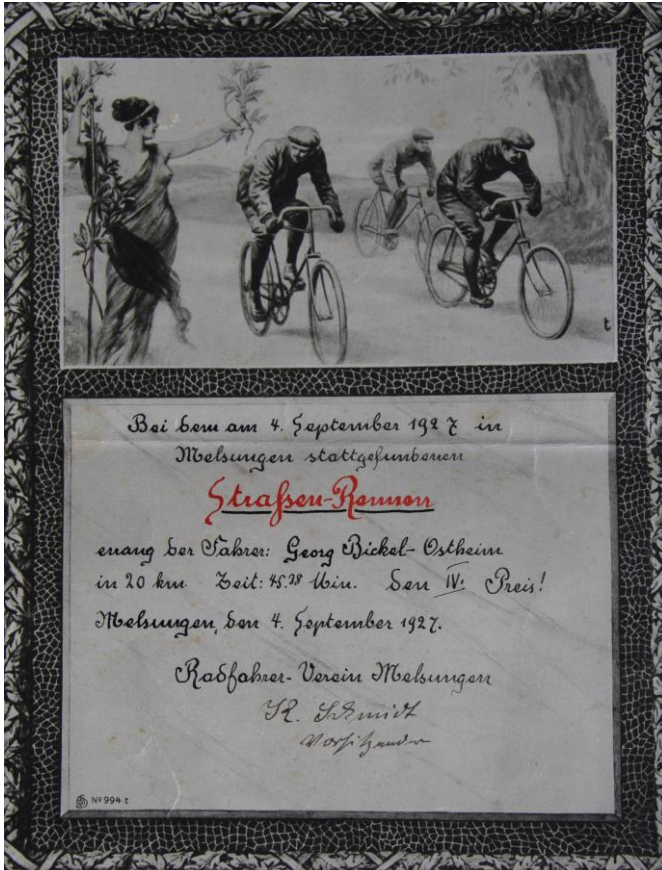 Bei dem am 4. September 1927 in
Melsungen stattgefundenen
Straßen-Rennen
errang der Fahrer: Georg Bickel-Ostheim
in 20 km Zeit: 45.38 Min. den IV. Preis!
Melsungen, den 4. September 1927.
Radfahrer-Verein Melsungen
K. Schmidt
Vorsitzender
t
No 994 t